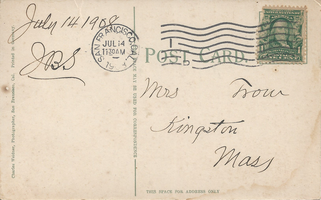 July 14 1908
JBS
SAN FRANCISCO, CAL.
JUL 14
1130AM
POST CARD.
Mrs Trow
Kingston
Mass
THIS SPACE FOR ADDRESS ONLY